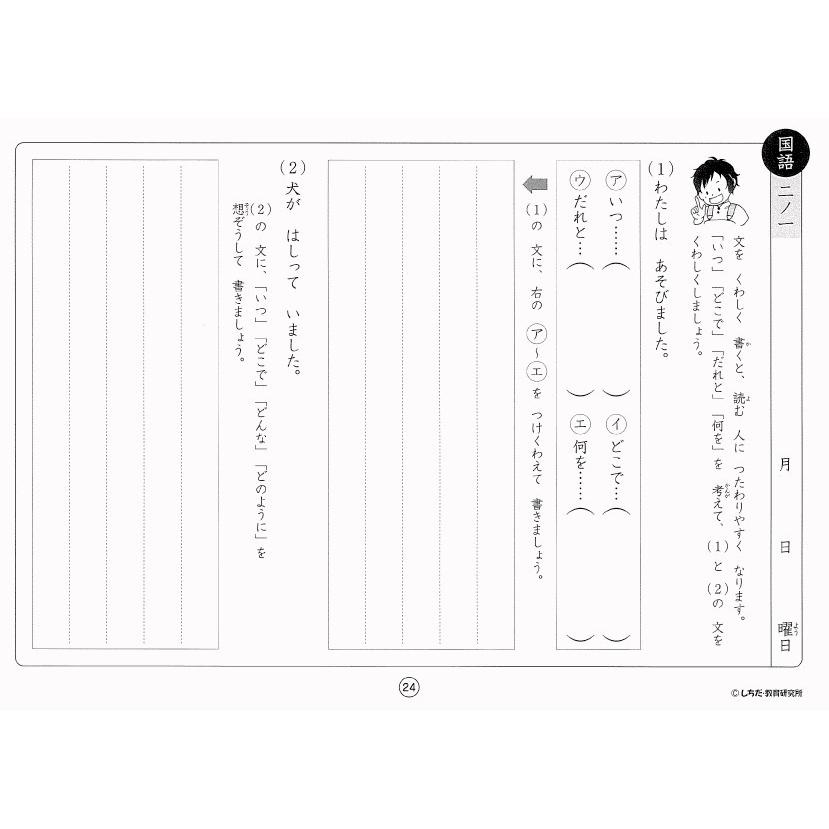 国語
二ノ一
月 日 曜日
よう
文を くわしく 書くと、読む 人に つたわりやすく なります。
か
よ
「いつ」「どこで」「だれと」「何を」を 考えて、(1)と(2)の 文を
かんが
くわしくしましょう。
(1)わたしは あそびました。
㋐いつ……( ) ㋑どこで…( )
㋒だれと…( ) ㋓何を……( )
(1)の 文に、右の ㋐~㋓を つけくわえて 書きましょう。
(2)犬が はしって いました。
(2)の 文に、「いつ」「どこで」「どんな」「どのように」を
想ぞうして 書きましょう。
そう
24
©しちだ・教育研究所